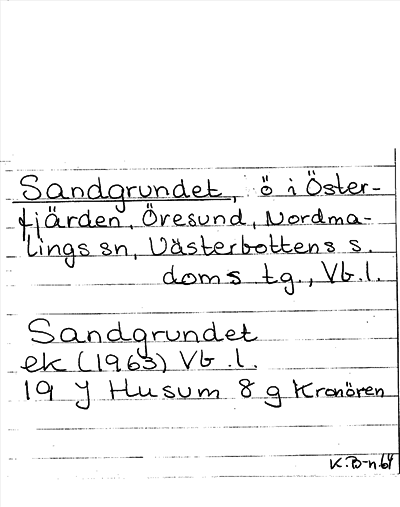 Sandgrundet, ö i Öster-
fjärden, Öresund, Nordma-
lings sn, Västerbottens s.
doms tg., Vb.l.
Sandgrundet
ek (1963) Vb.l.
19 J Husum 8 g Kronören
K.B-n 64